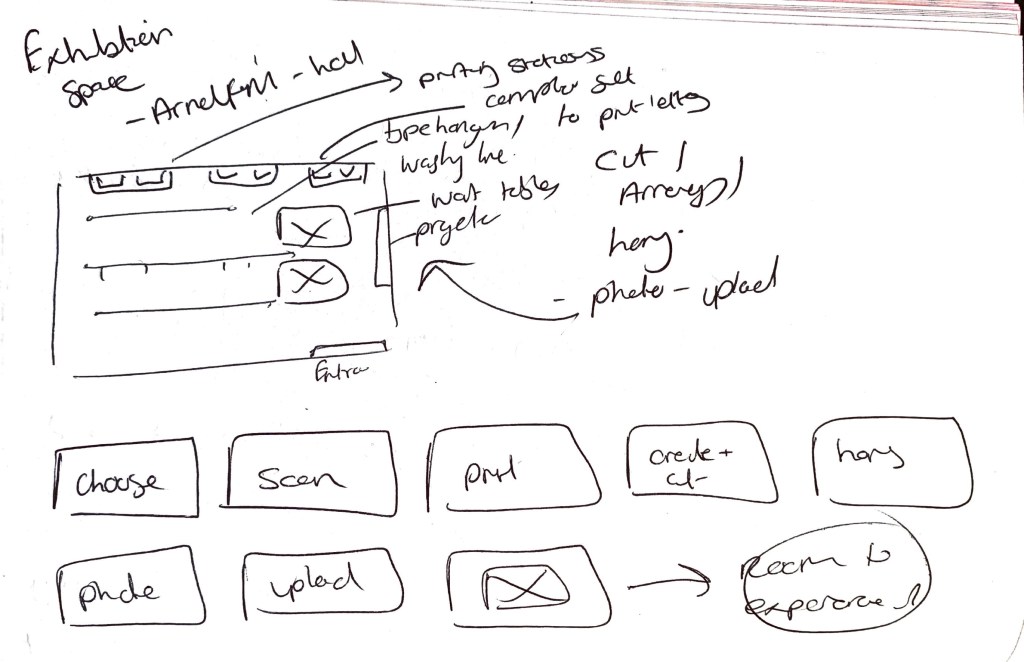 Exhibition
space
- Arnolfini - hall
printing stations
computer set
to print letters
type hangers /
washing line.
wait tables
projector
cut /
Arrange /
hang.
- photo - upload
Entra
choose
scan
print
create +
cut
hang
photo
upload
Room to
experience it